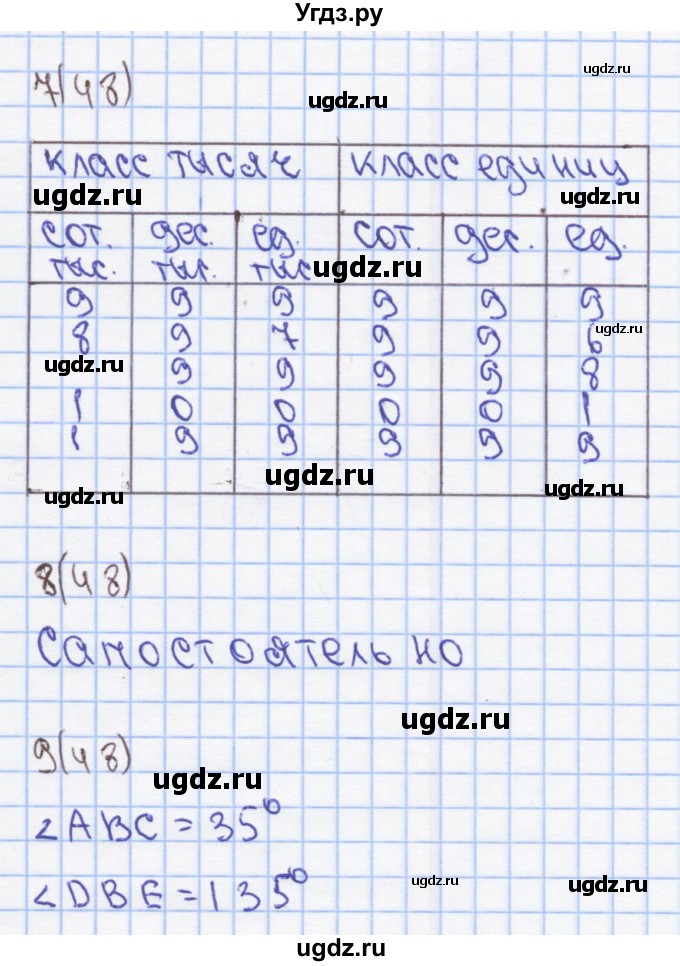 Угдз.ру
ugdz.ru
7(48)
ugdz.ru
класс тысяч класс единиц
ugdz.ru ugdz.ru
сот. тыс. дес. тыс. ед. тыс сот. дес. ед.
ugdz.ru
9 9 9 9 9 9
8 9 7 9 9 6
ugdz.ru
9 9 9 9 8
ugdz.ru
1 0 0 0 0 1
1 9 9 9 9 9
ugdz.ru
ugdz.ru ugdz.ru
8(48)
Самостоятельно
ugdz.ru
9(48)
ugdz.ru
∠ABC = 35°
∠DBE = 135°
ugdz.ru ugdz.ru
ugdz.ru